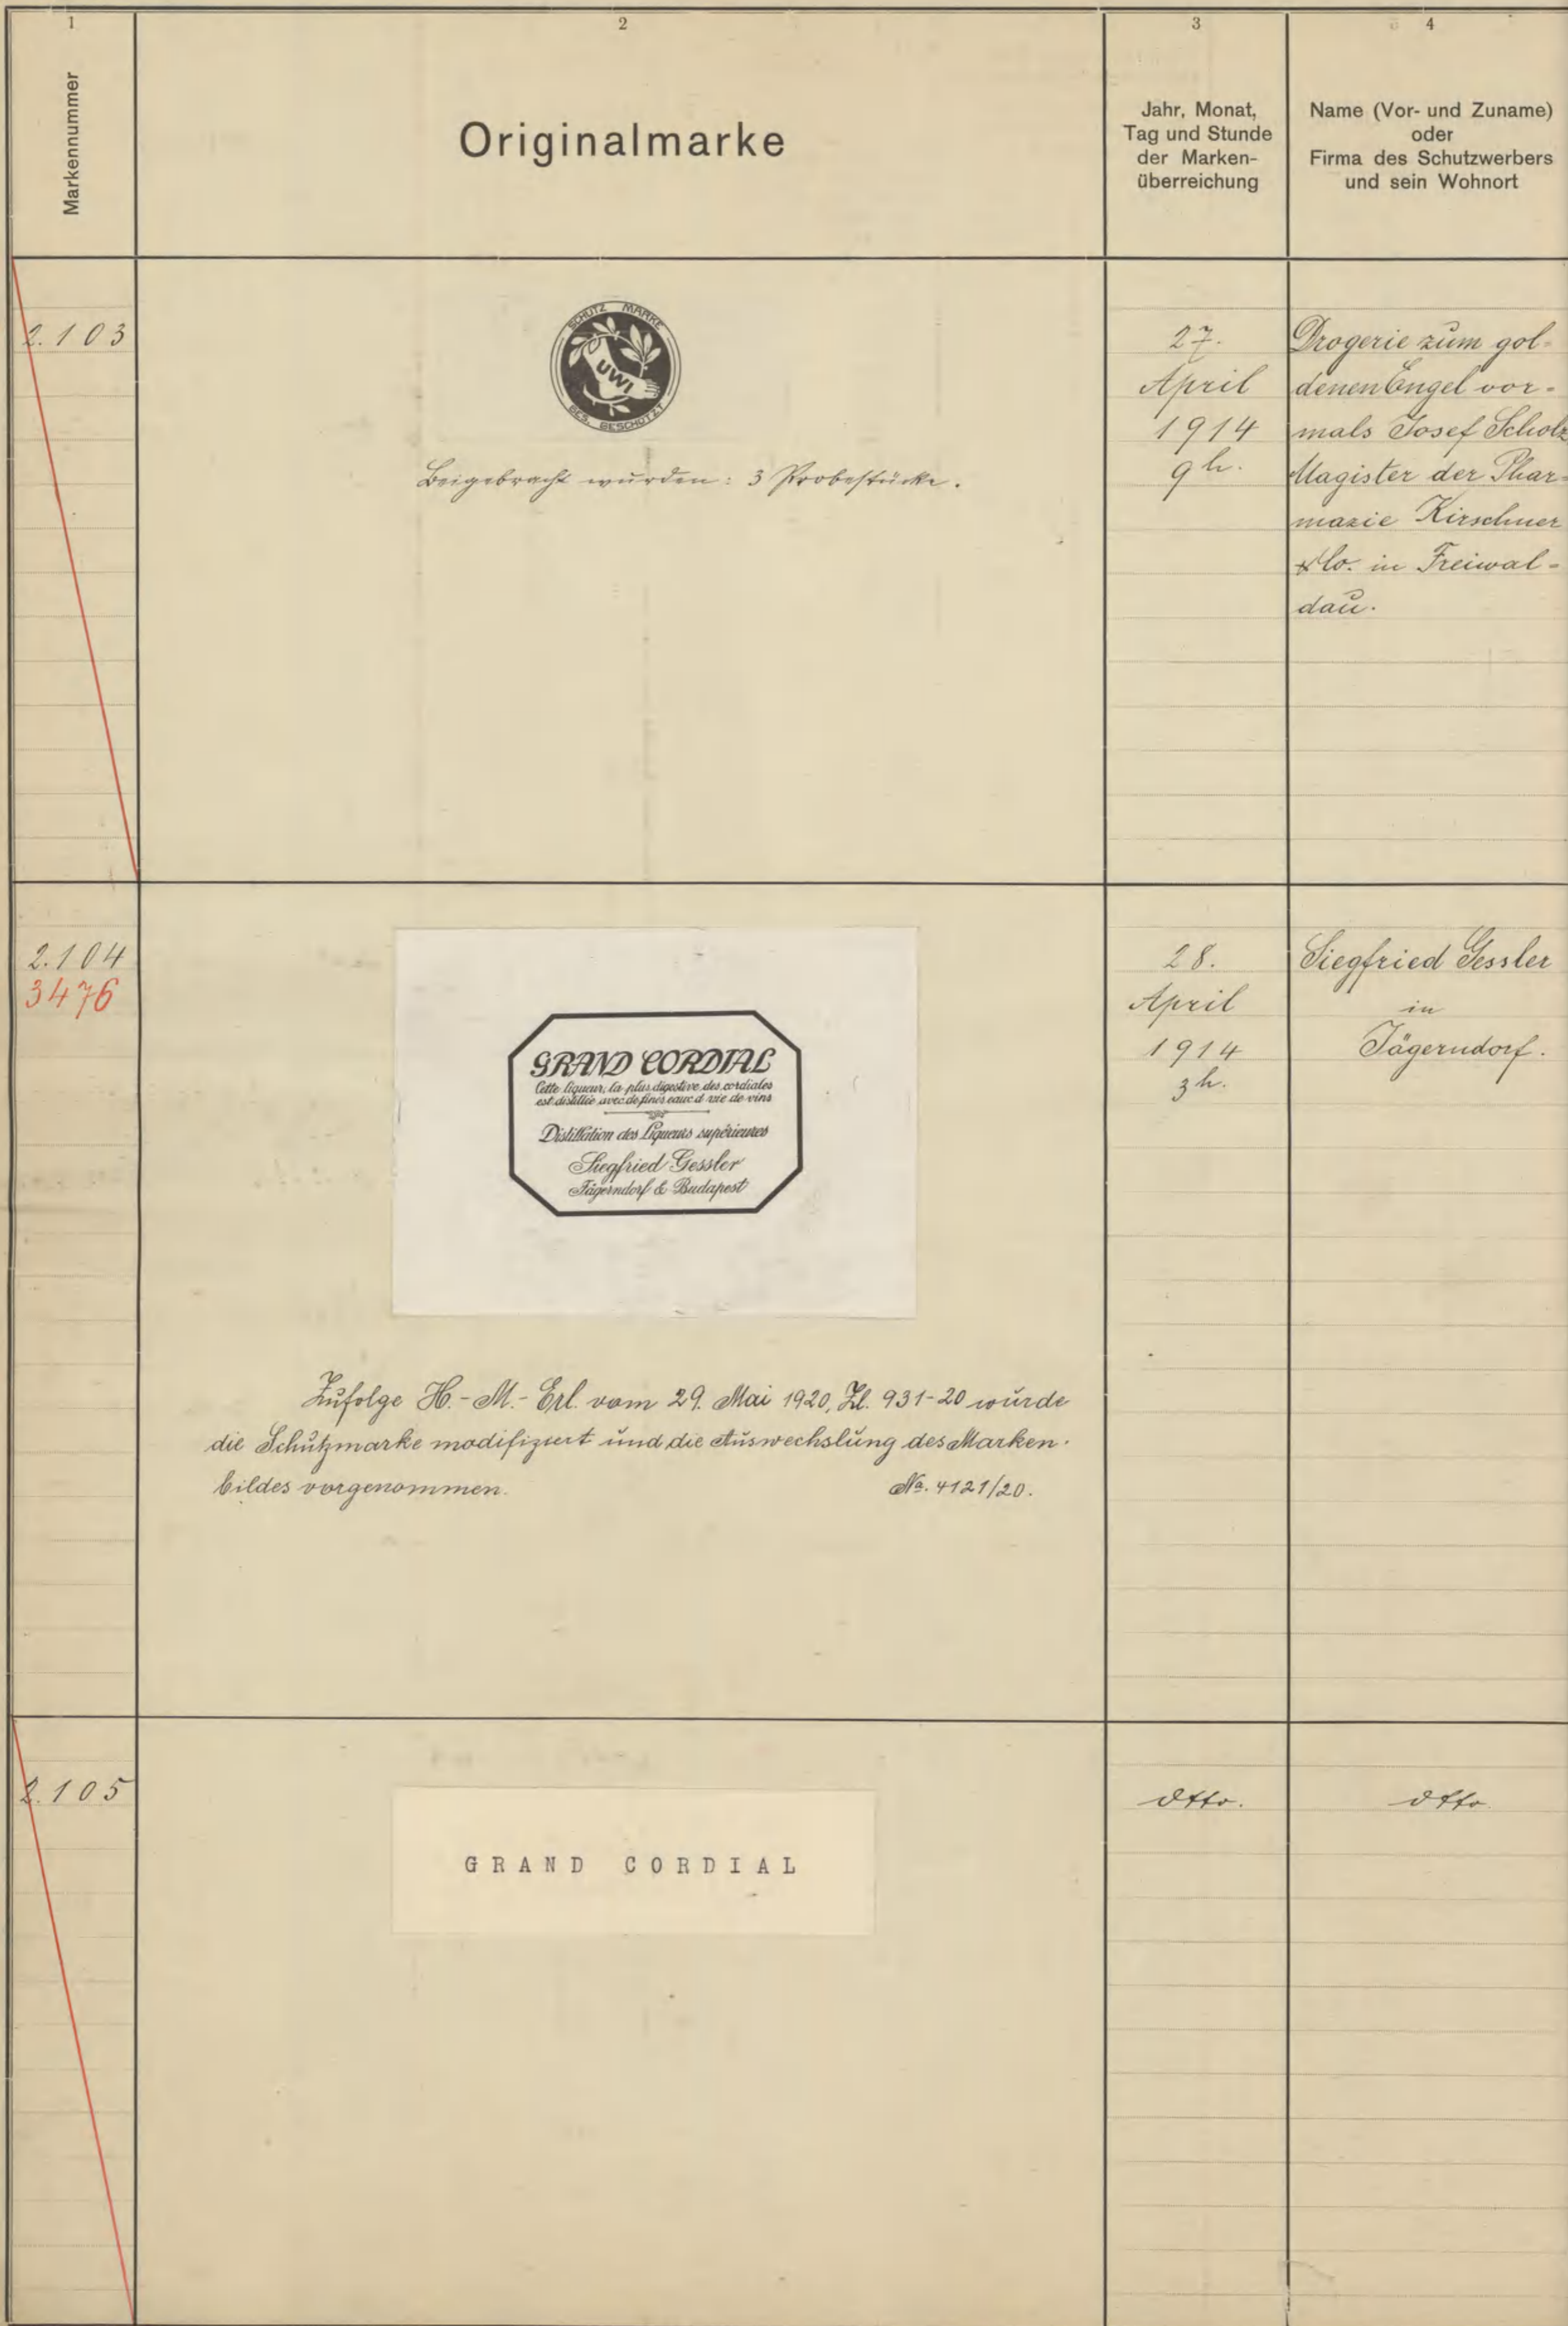 1
2
3
4
Markennummer
Originalmarke
Jahr, Monat,
Tag und Stunde
der Marken-
überreichung
Name (Vor- und Zuname)
oder
Firma des Schutzwerbers
und sein Wohnort
2.103
SCHUTZ MARKE
UWI
GES. GESCHÜTZT
Beigebracht wurden: 3 Probestücke.
27.
April
1914
9h.
Drogerie zum gol-
denen Engel vor-
mals Josef Scholz
Magister der Phar-
mazie Kirschner
& Co. in Freiwal-
dau.
2.104
3476
GRAND CORDIAL
Cette liqueur, la plus digestive des cordiales
est distillée avec de fines eaux d vie de vins
Distillation des Liqueurs supérieures
Siegfried Gessler
Jägerndorf & Budapest
Zufolge H.-M.-Erl. vom 29. Mai 1920, Zl. 931-20 wurde
die Schutzmarke modifiziert und die Auswechslung des Marken-
bildes vorgenommen.
No. 4121/20.
28.
April
1914
3h.
Siegfried Gessler
in
Jägerndorf.
2.105
GRAND CORDIAL
dtto.
dtto.